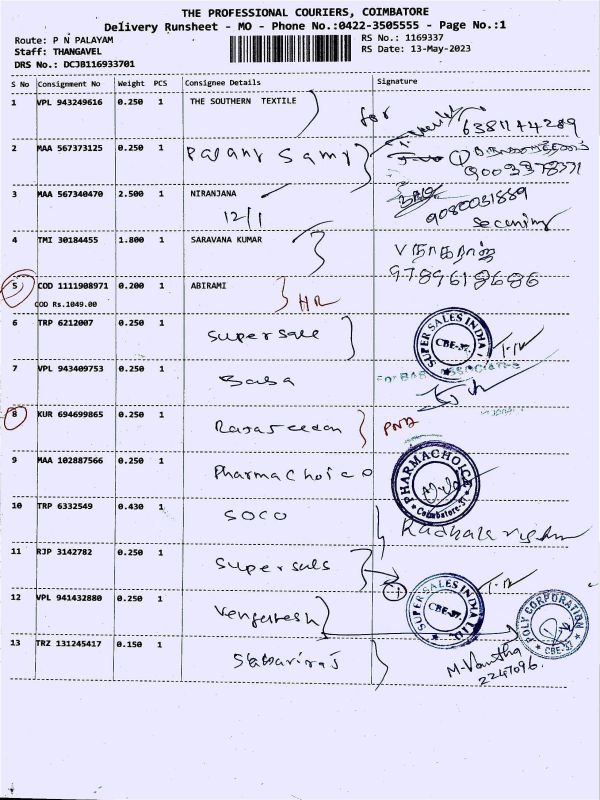 THE PROFESSIONAL COURIERS, COIMBATORE
Delivery Runsheet - MO - Phone No.:0422-3505555 - Page No.:1
Route: P N PALAYAM
Staff: THANGAVEL
DRS No.: DCJB116933701
RS No.: 1169337
RS Date: 13-May-2023
S No Consignment No Weight PCS Consignee Details Signature
1 VPL 943249616 0.250 1 THE SOUTHERN TEXTILE for 6381144289
2 MAA 567373125 0.250 1 Palany Samy
9003378371
3 MAA 567340470 2.500 1 NIRANJANA
12/1 9080031889
4 TMI 30184455 1.800 1 SARAVANA KUMAR வ நாகராஜ்
9789618686
5 COD 1111908971 0.200 1 ABIRAMI
COD Rs.1049.00 HR
6 TRP 6212007 0.250 1 Super sale SUPER SALES INDIA CBE-37.
7 VPL 943409753 0.250 1 Baba
8 KUR 694699865 0.250 1
9 MAA 102887566 0.250 1 Pharma Choice PHARMACHOICE Coimbatore-37
10 TRP 6332549 0.430 1 SOCO
11 RJP 3142782 0.250 1 Super sals SUPER SALES INDIA LTD. CBE-37.
12 VPL 941432880 0.250 1 Vengatesh POLY CORPORATION CBE-37
13 TRZ 131245417 0.150 1 Sabariraj M. Vanitha
2247096.